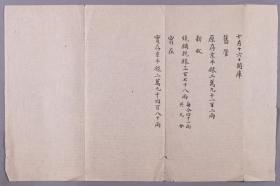 十月十六日開庫
舊管
原存京平銀二萬九千一百二兩
新收
實在
實存京平銀二萬九千四百八十兩